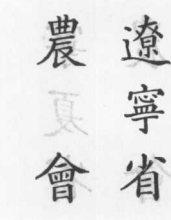 遼寧省
農會